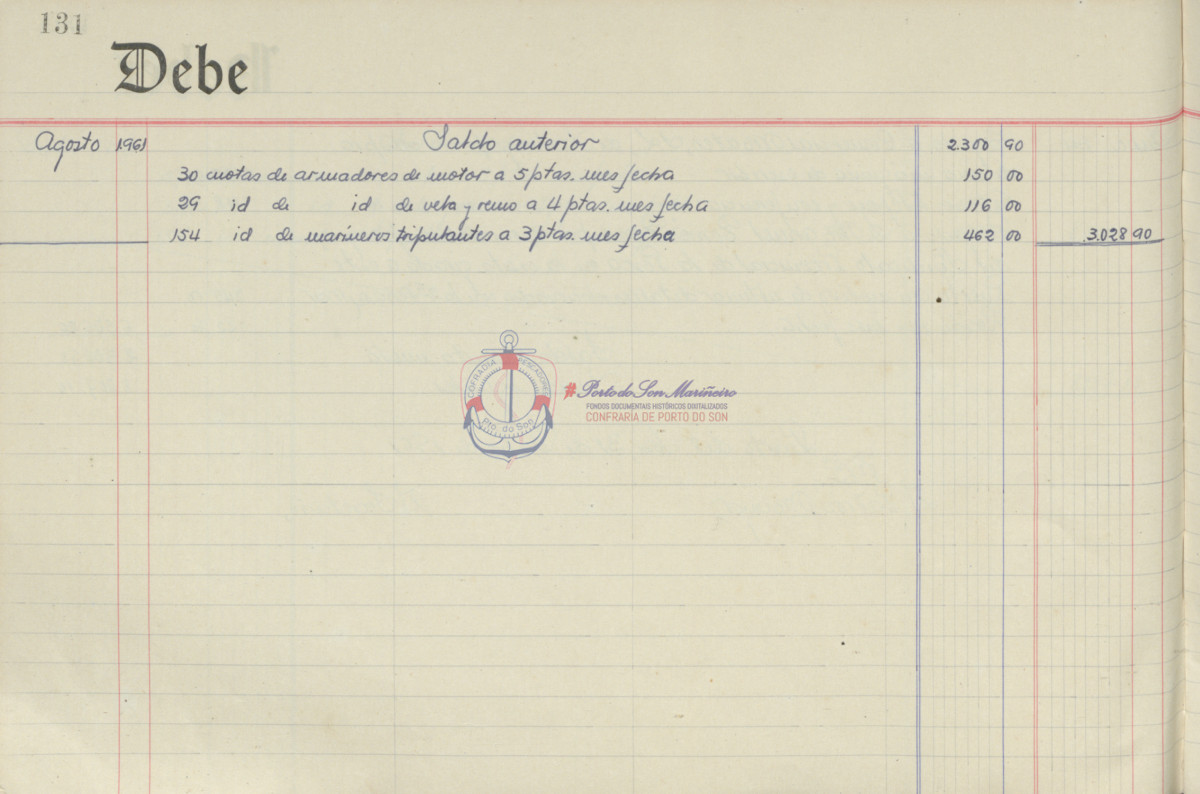 131
Debe
Agosto 1961 Saldo anterior 2.300 90
30 cuotas de armadores de motor a 5 ptas. mes fecha 150 00
29 id de id de vela y remo a 4 ptas. mes fecha 116 00
154 id de marineros tripulantes a 3 ptas. mes fecha 462 00 3.028 90
COFRADIA PESCADORES
Pto. do Son
#Porto do Son Mariñeiro
FONDOS DOCUMENTAIS HISTÓRICOS DIXITALIZADOS
CONFRARÍA DE PORTO DO SON